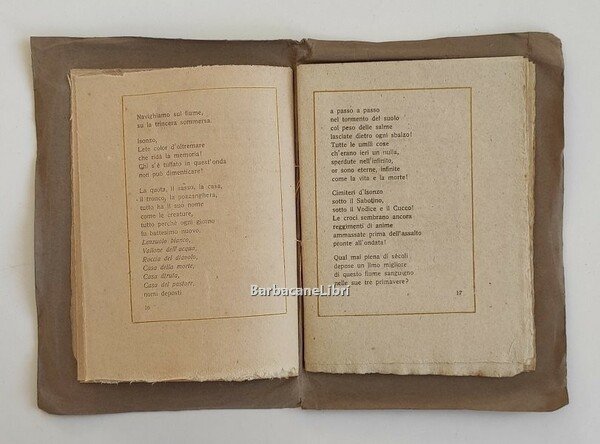 Navighiamo sul fiume,
su la trincera sommersa.
Isonzo,
Lete color d'oltremare
che ridà la memoria!
Chi s'è tuffato in quest'onda
non può dimenticare!
La quota, il sasso, la casa,
il tronco, la pozzanghera,
tutto ha il suo nome
come le creature,
tutto perchè ogni giorno
fu battesimo nuovo.
Lenzuolo bianco,
Vallone dell'acqua,
Roccia del diavolo,
Casa della morte,
Casa diruta,
Casa del pastore,
nomi deposti
16
a passo a passo
nel tormento del suolo
col peso delle salme
lasciate dietro ogni sbalzo!
Tutte le umili cose
ch'erano ieri un nulla,
sperdute nell'infinito,
or sono eterne, infinite
come la vita e la morte!
Cimiteri d'Isonzo
sotto il Sabotino,
sotto il Vodice e il Cucco!
Le croci sembrano ancora
reggimenti di anime
ammassate prima dell'assalto
pronte all'ondata!
Qual mai piena di sècoli
depose un limo migliore
di questo fiume sanguigno
nelle sue tre primavere?
17
BarbacaneLibri